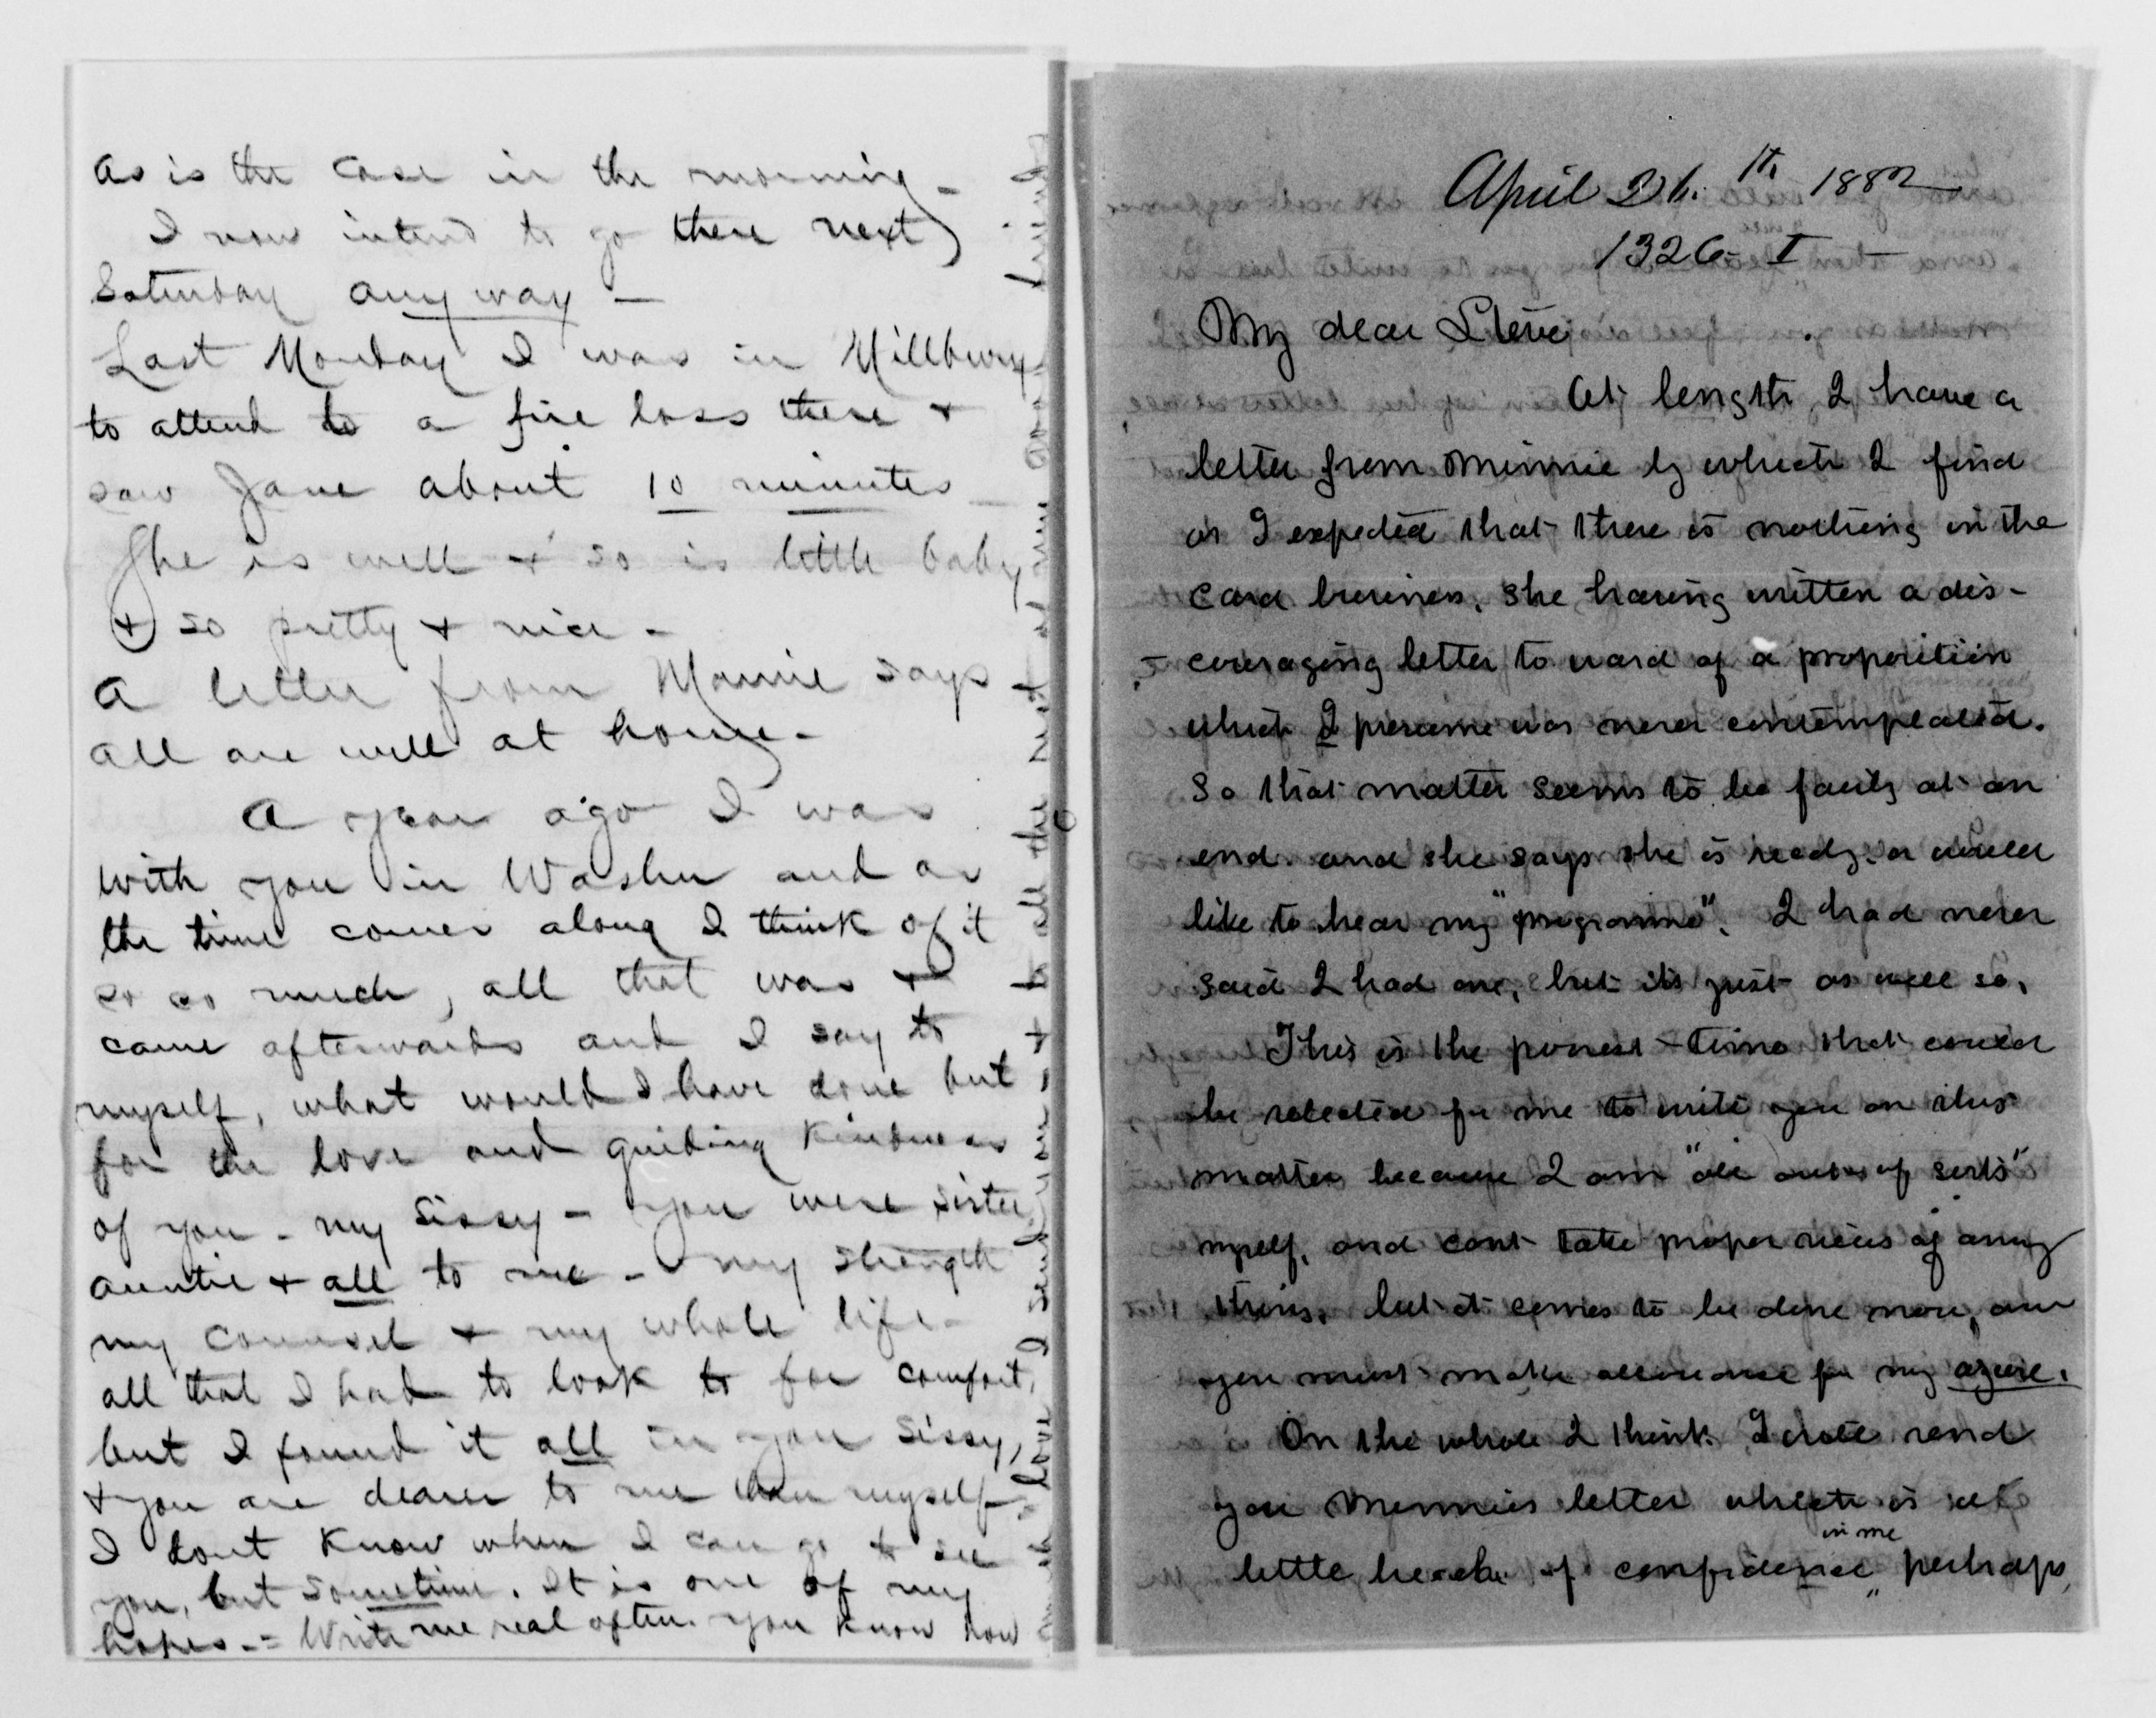 as is the case in the morning -
I now intend to go there next
Saturday any way -
Last Monday I was in Millbury
to attend to a fire loss there +
saw Jane about 10 minutes -
She is well + so is little baby
+ so pretty + nice -
A letter from Mamie says
all are well at home -
A year ago I was
with you in Washn and as
the time comes along I think of it
so so much, all that was +
came afterwards and I say to
myself, what would I have done but
for the love and guiding kindness
of you - my Sissy - you were sister
auntie + all to me - my strength
my counsel + my whole life -
all that I had to look to for comfort,
but I found it all in you Sissy,
+ you are dearer to me than myself -
I dont know when I can go to see
you, but sometime. It is one of my
hopes - = Write me real often. you know how
April 26.th 1882
1326 - I -
My dear Steve
At length, I have a
letter from Minnie by which I find
as I expected that there is nothing in the
card business, she having written a dis-
couraging letter to ward of a proposition
which I presume was never contemplated.
So that matter seems to be fairly at an
end and she says she is ready or would
like to hear my "programme". I had never
said I had one, but its just as well so.
This is the poorest time that could
be selected for me to write you on this
matter because I am "all out of sorts"
myself, and cant take proper views of any
thing, but it comes to be done now, and
you must make allowance for my azure.
On the whole I think I will send
you Minnies letter which is a
little breach of confidence in me perhaps,